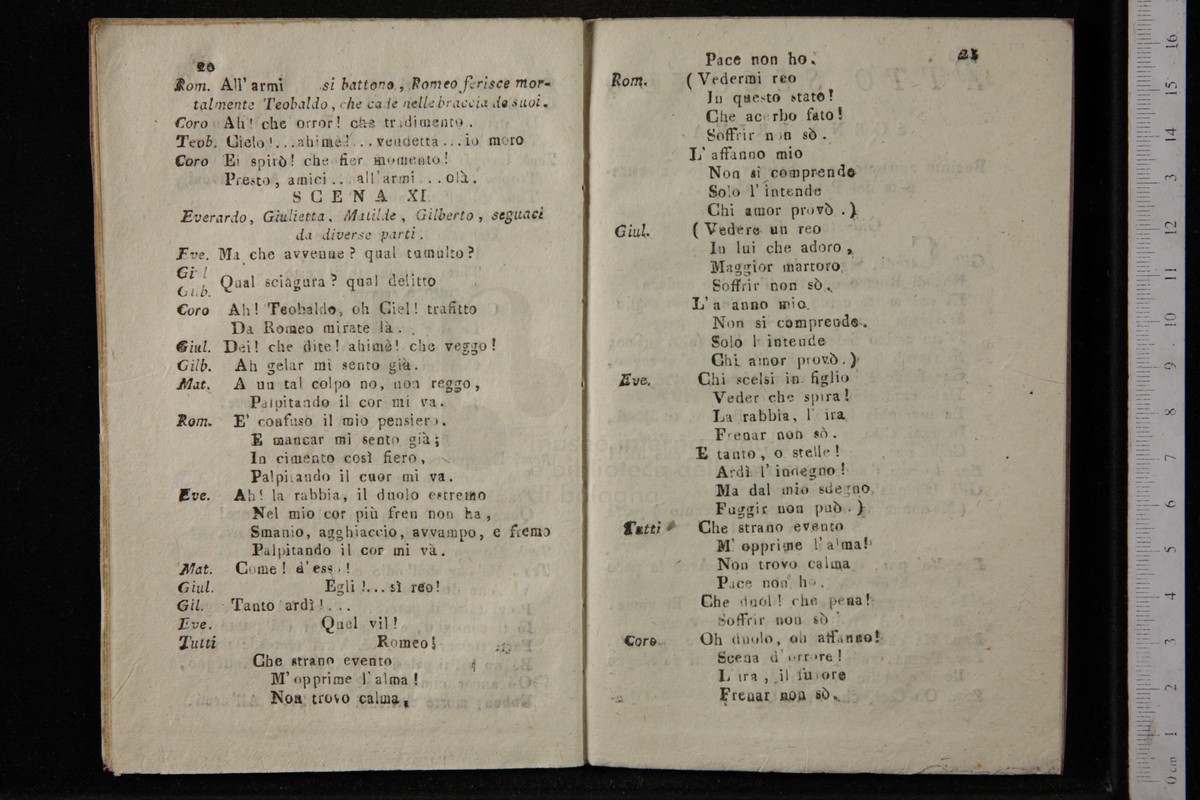 20
Rom. All' armi si battono, Romeo ferisce mor-
talmente Teobaldo, che cade nelle braccia de suoi.
Coro Ah! che orror! che tradimento.
Teob. Cielo!...ahimè!...vendetta...io moro
Coro Ei spirò! che fier momento!
Presto, amici... all'armi...olà.
SCENA XI
Everardo, Giulietta, Matilde, Gilberto, seguaci
da diverse parti.
Eve. Ma che avvenne? qual tumulto?
Gi l
Gilb. Qual sciagura? qual delitto
Coro Ah! Teobaldo, oh Ciel! trafitto
Da Romeo mirate là.
Giul. Dei! che dite! ahimè! che veggo!
Gilb. Ah gelar mi sento già.
Mat. A un tal colpo no, non reggo,
Palpitando il cor mi va.
Rom. E' confuso il mio pensiero.
E mancar mi sento già;
In cimento così fiero,
Palpitando il cuor mi va.
Eve. Ah! la rabbia, il duolo estremo
Nel mio cor più fren non ha,
Smanio, agghiaccio, avvampo, e fremo
Palpitando il cor mi và.
Mat. Come! d'esso!
Giul. Egli!... sì reo!
Gil. Tanto ardì!...
Eve. Quel vil!
Tutti Romeo!
Che strano evento
M'opprime l'alma!
Non trovo calma,
21
Pace non ho.
Rom. (Vedermi reo
In questo stato!
Che acerbo fato!
Soffrir non sò.
L'affanno mio
Non si comprende
Solo l'intende
Chi amor provò.)
Giul. (Vedere un reo
In lui che adoro,
Maggior martoro
Soffrir non sò.
L'a anno mio
Non si comprende.
Solo l intende
Chi amor provò.)
Eve. Chi scelsi in figlio
Veder che spira!
La rabbia, l' ira
Frenar non sò.
E tanto, o stelle!
Ardì l'indegno!
Ma dal mio sdegno
Fuggir non può.)
Tutti Che strano evento
M' opprime l'alma!
Non trovo calma
Pace non ho.
Che duol! che pena!
Soffrir non sò
Coro Oh duolo, oh affanno!
Scena d'orrore!
L ira, il furore
Frenar non sò.